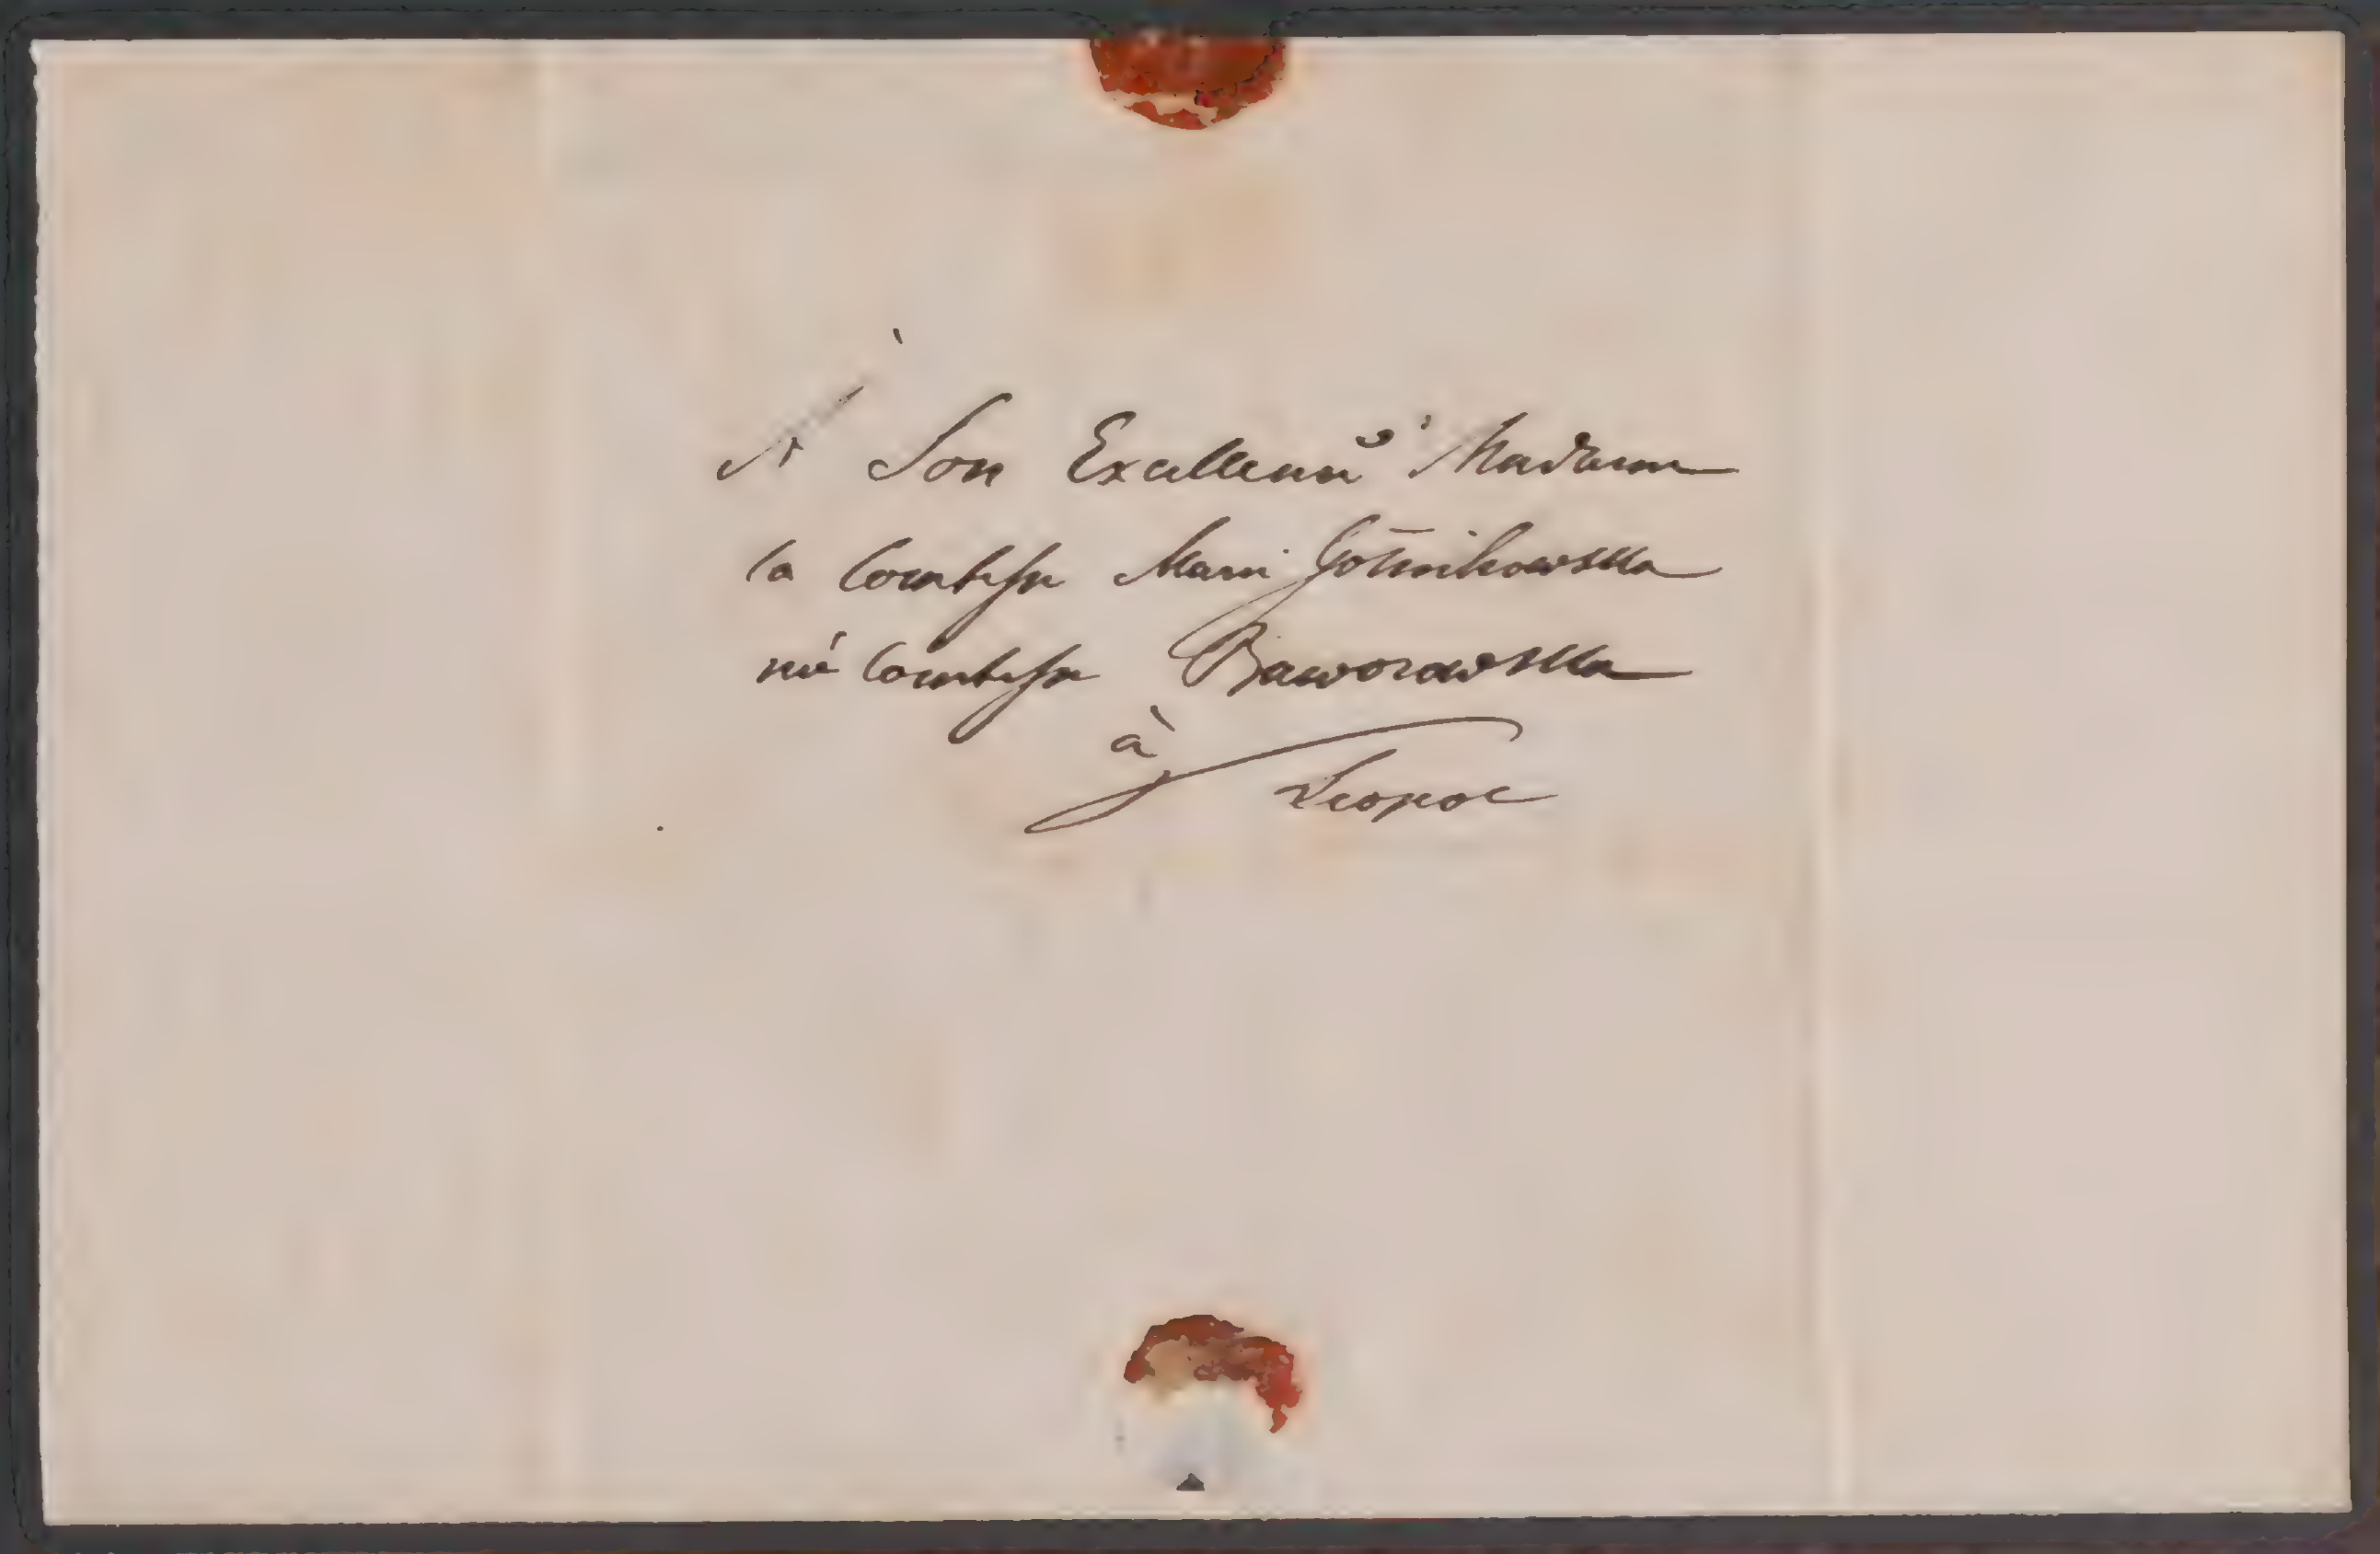 À Son Excellence Madame
la Comtesse Marie
née Comtesse Baworowska
à
Leopol